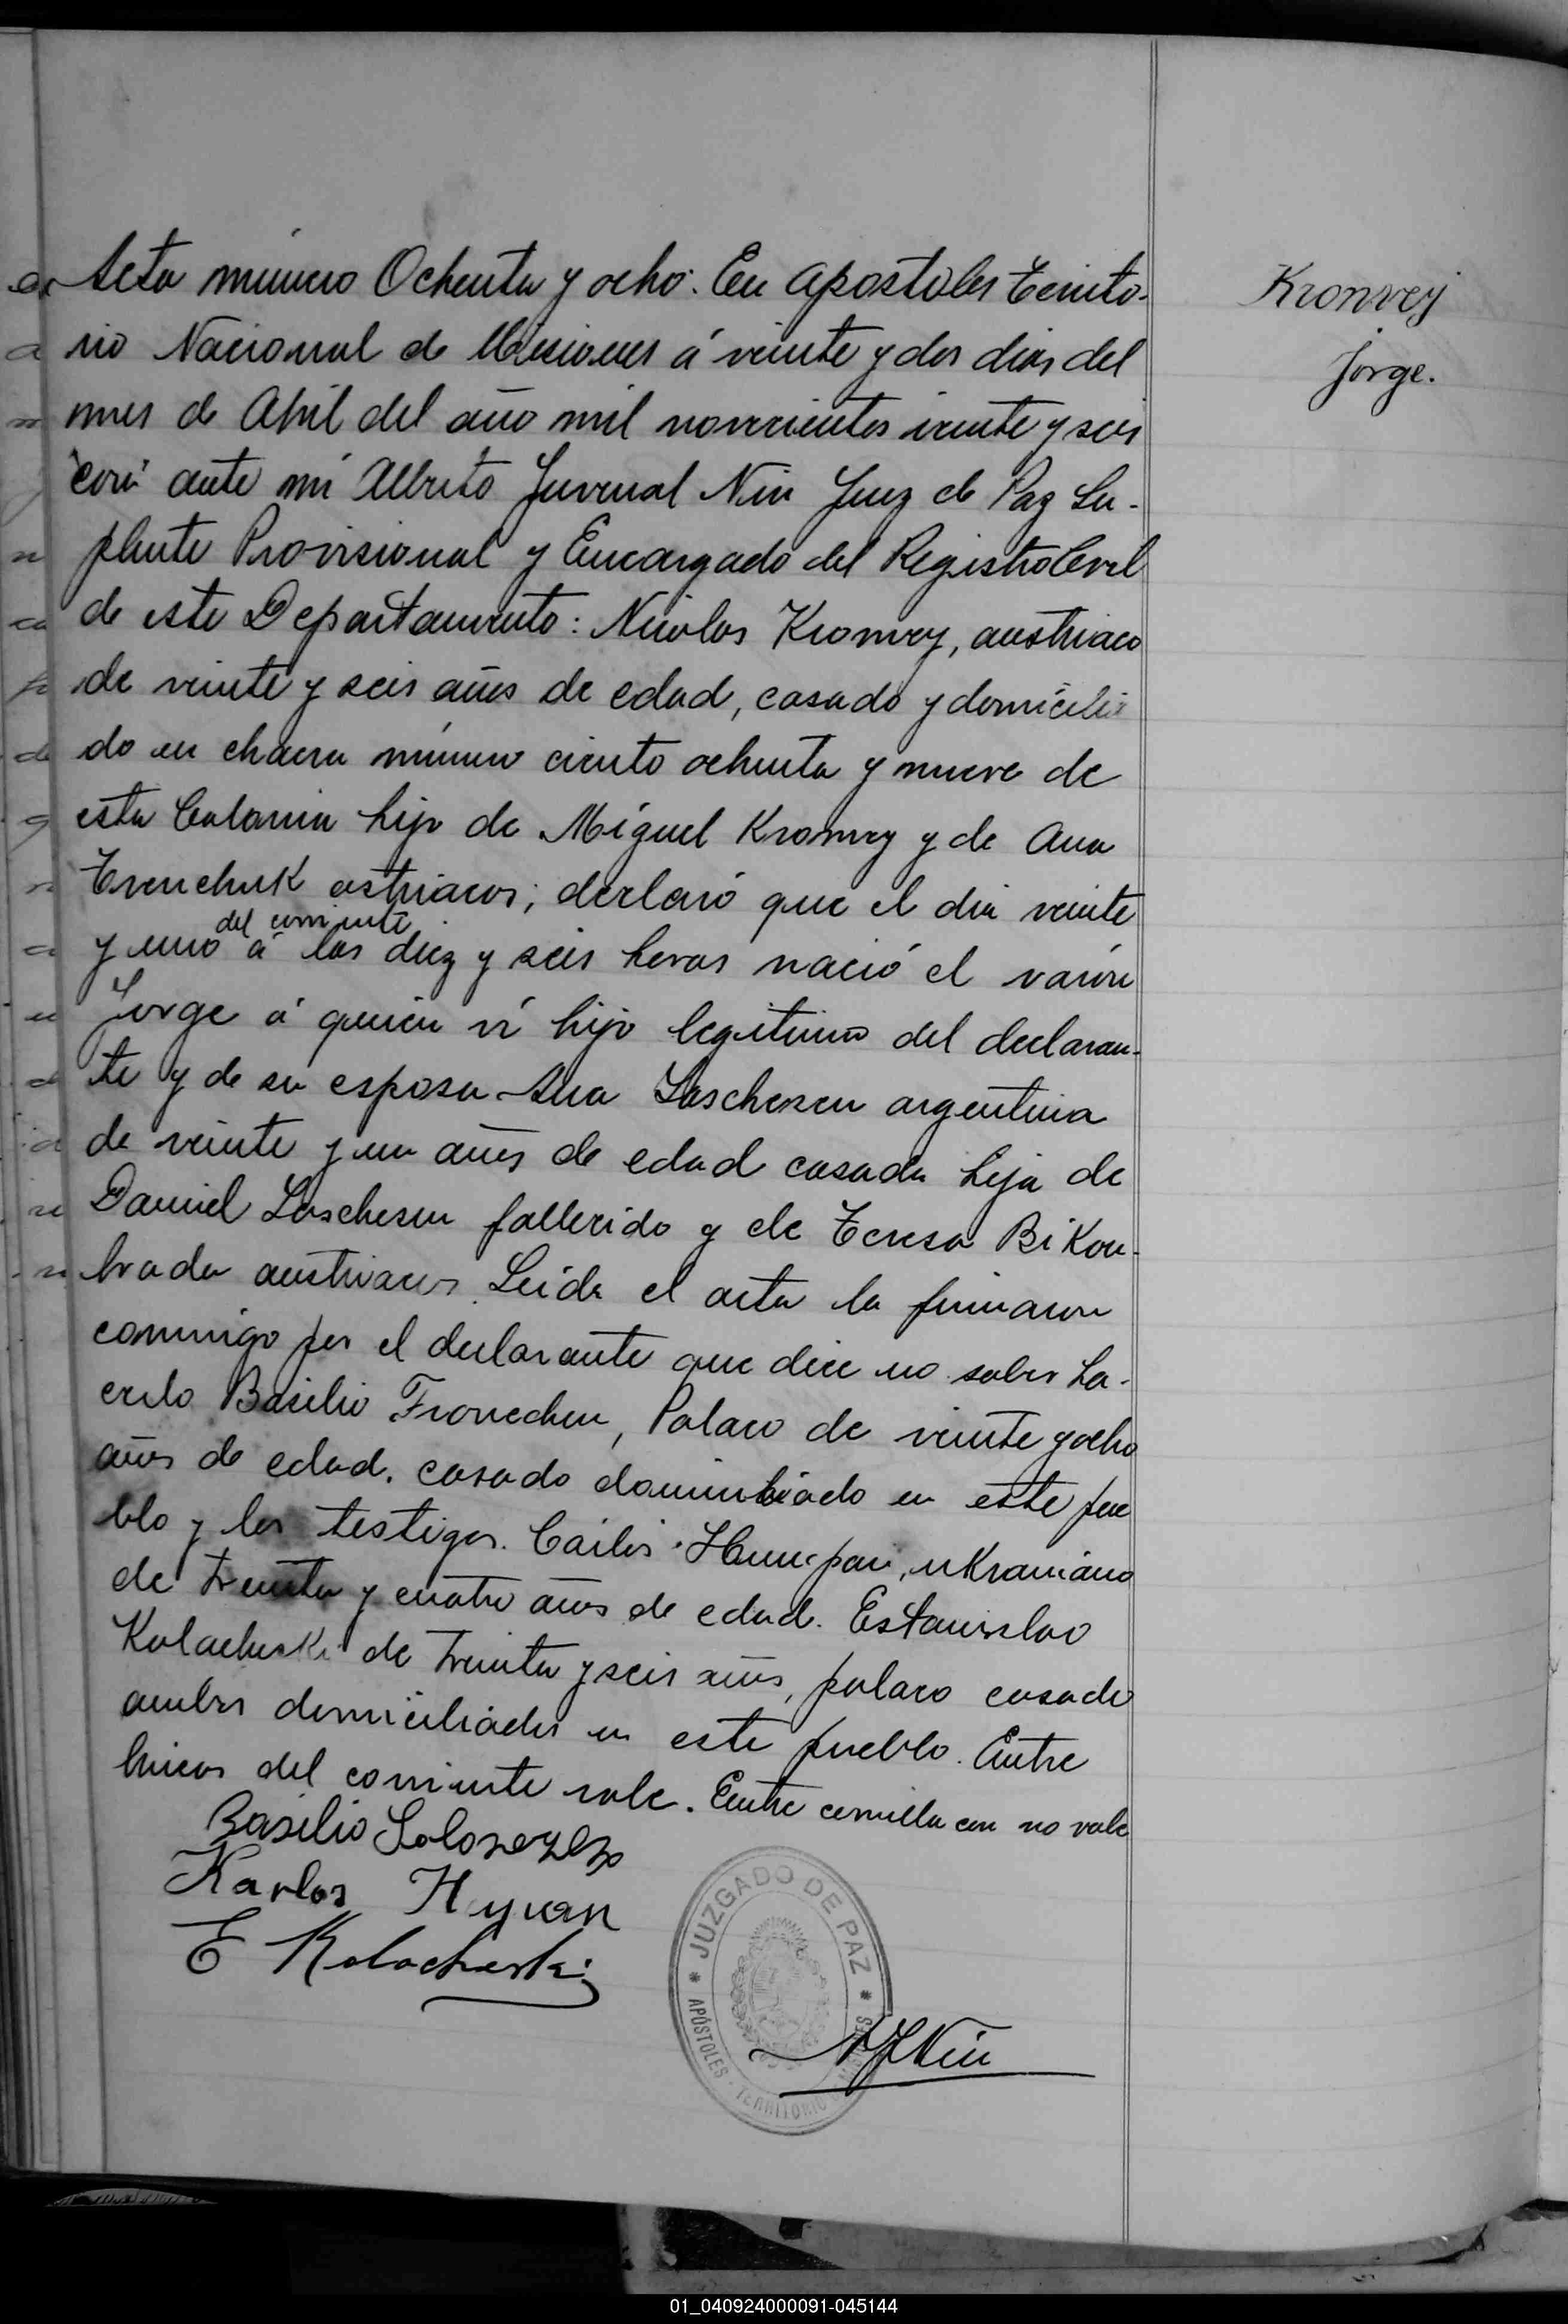 Acta número Ochenta y ocho: En Apostoles Territo-
rio Nacional de Misiones á veinte y dos dias del
mes de Abril del año mil novecientos veinte y seis
"con" ante mi Alberto Juvenal Nin Juez de Paz Su-
plente Provisional y Encargado del Registro Civil
de este Departamento: Nicolas Kromvey, austriaco
de veinte y seis años de edad, casado y domicilia
do en chacra número ciento ochenta y nueve de
esta Colonia hijo de Miguel Kromvey y de Ana
Evenchuk astriacos; declaró que el dia veinte
del corriente
y uno á las diez y seis horas nació el varón
Jorge á quien vi hijo legitimo del declaran-
te y de su esposa Ana Laschesen argentina
de veinte y un años de edad casada hija de
Daniel Laschesen fallecido y de Teresa BiKou-
brada austriacos. Leida el acta la firmaron
conmigo por el declarante que dice no saber ha-
cerlo Basilio Polaco de veinte y ocho
años de edad, casado domiciliado en este pue
blo y los testigos. Carlos uKraniano
de treinta y cuatro años de edad. Estanislao
Kolacheski de treinta y seis años, polaco casado
ambos domiciliados en este pueblo. Entre
lineas del corriente vale. Entre comilla con no vale
Basilio
Karlos Hyvan
E Kolacheski
AJNin
JUZGADO DE PAZ
APÓSTOLES - TERRITORIO MISIONES
Kronvey
Jorge.
01_040924000091-045144